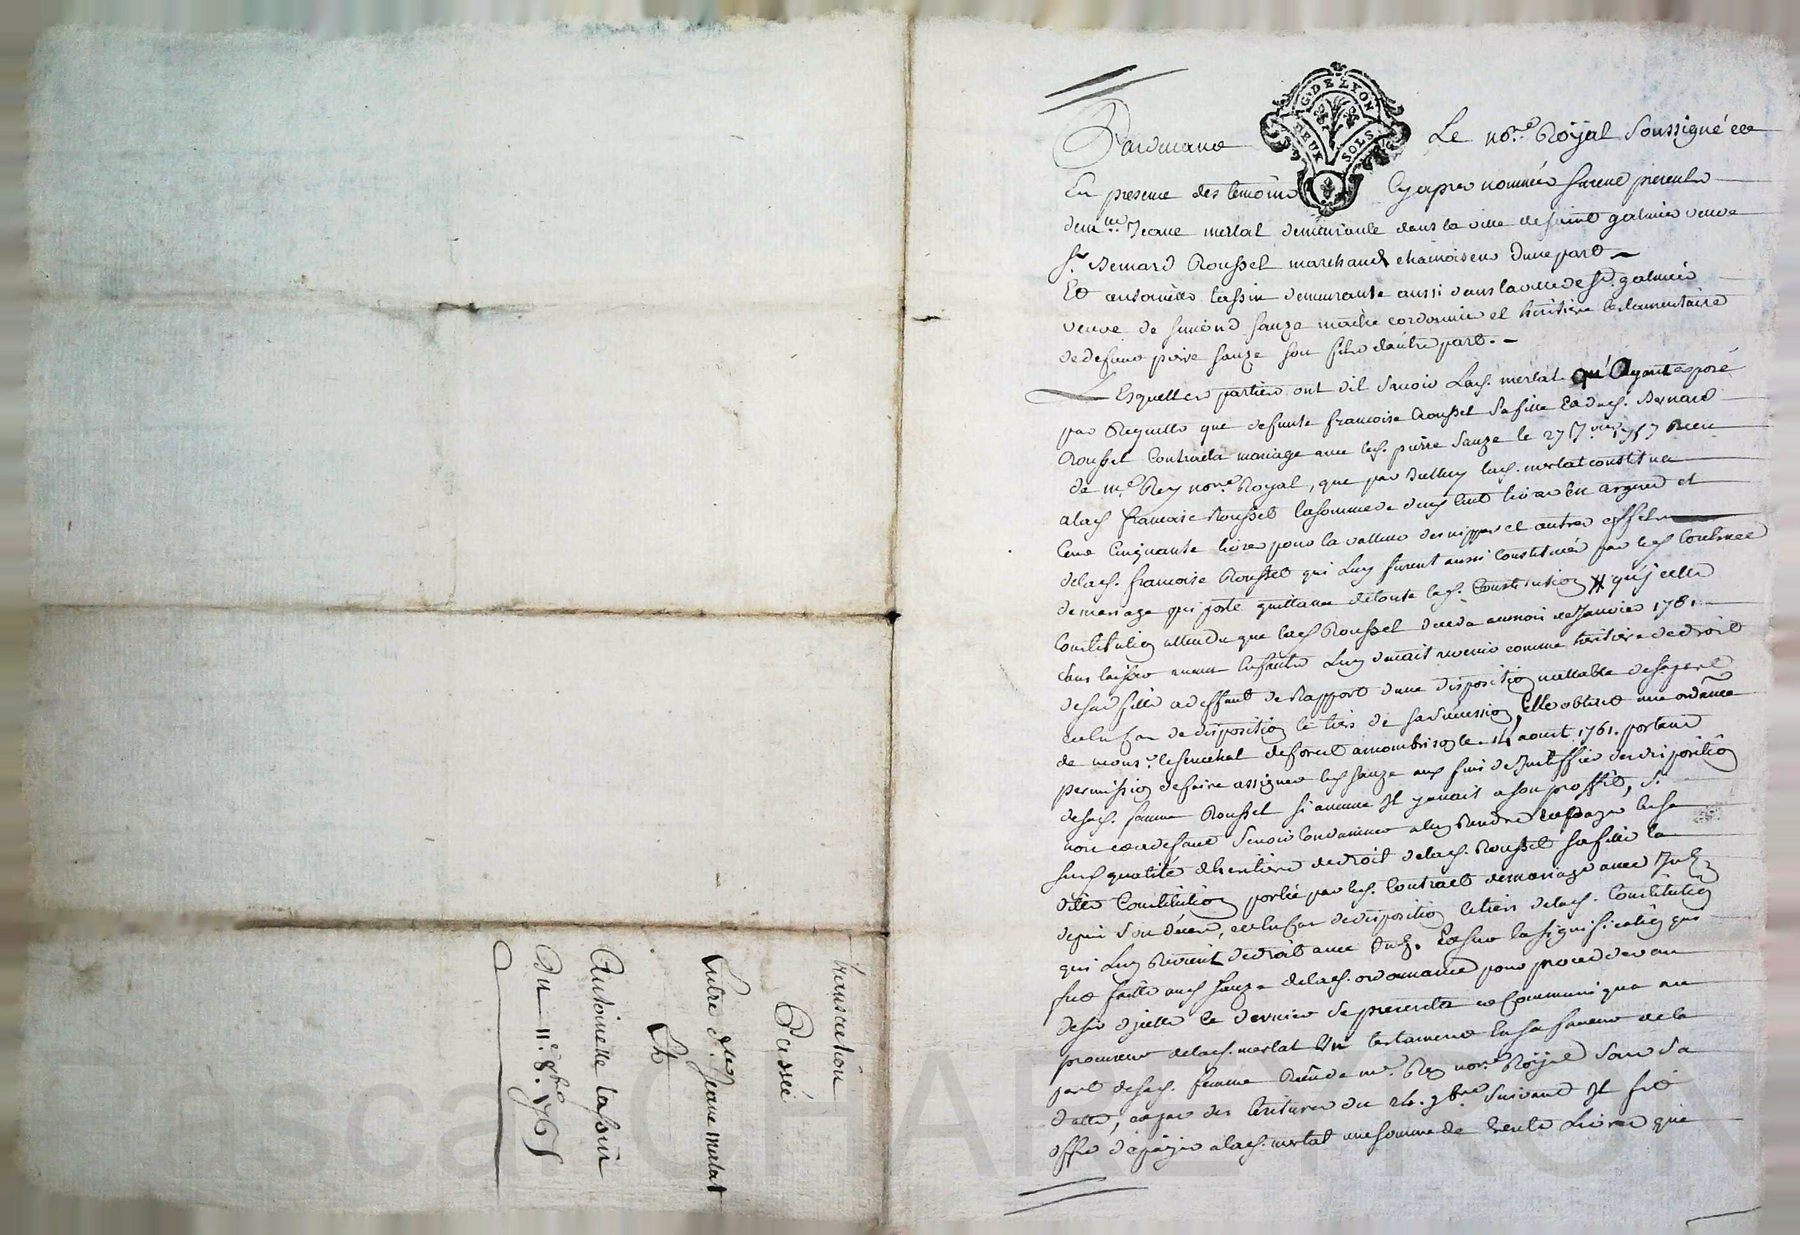 G. DE LYON
DEUX SOLS
Pardevant Le no.re Royal soussigné et
En presence des temoins cy apres nommés furent presents
dem.lle Jeane merlat demeurante dans la ville de saint galmier veuve
s.r Bernard Roussel marchand chamoiseur dune part
Et antoinette tassin demeurante aussi dans la ville de st. galmier
veuve de simond sauze maitre cordonnier et heritiere testamentaire
de defunt pierre sauze son fils dautre part.
Lesquelles parties ont dit savoir lad. merlat qu'Ayant exposé
par Requette que defunte francoise Roussel sa fille Et dud. Bernard
Roussel Contracta mariage avec led. pierre sauze le 27 1757 Receu
de m.e Rey no.re Royal, que par Icelluy lad. merlat constitua
a lad francoise Roussel la somme de cent livres En argent et
Cent Cinquante livres pour la valleur des nippes et autres effets
de lad. francoise Roussel qui Luy furent aussi constitués par led Contract
de mariage qui porte quittance de toute lad. Constitution qu'jcelle
Constitution attendu que lad Roussel deceda au mois de Janvier 1761
sans laisser aucun Enfants Luy devait revenir comme heritiere de droit
de sad fille a deffaut de Rapport dune disposition vallable de sa part
et En Cas de disposition le tiers de sa succession, Elle obtint une ordonnance
de mons.r le senechal de forest a montbrison le 14 aout 1761. portant
permission de faire assigner led sauze aux fins de Justiffier des disposition
de sad. femme Roussel si aucune Il y avait a son proffit, si
non et a defaut se voir Condamner a luy Rendre et payer En sa
susd qualité dheritiere de droit de lad. Roussel sa fille la
ditte Constitution portée par led. Contract de mariage avec Int.
depuis son deces, et En Cas de disposition le tiers de lad. Constitution
qui Luy Revient de droit avec Int. Et sur la signification qui
fut faitte aud sauze de lad. ordonnance pour proceder au
desir dicelle ce dernier se presenta et Communiqua au
procureur de lad. merlat Un testament En sa faveur de la
part de sad. femme Receu de m.e Rey no.re Royal sous sa
datte, et par des Ecritures du 24. 9bre suivant Il fit
offre de payer a lad. merlat une somme de trente Livres que
transaction
Passée
Entre d.lle Jeane merlat
Et
Antoinette tassin
Du 11.e 8.bre 1765
Pascal CHAREYRON